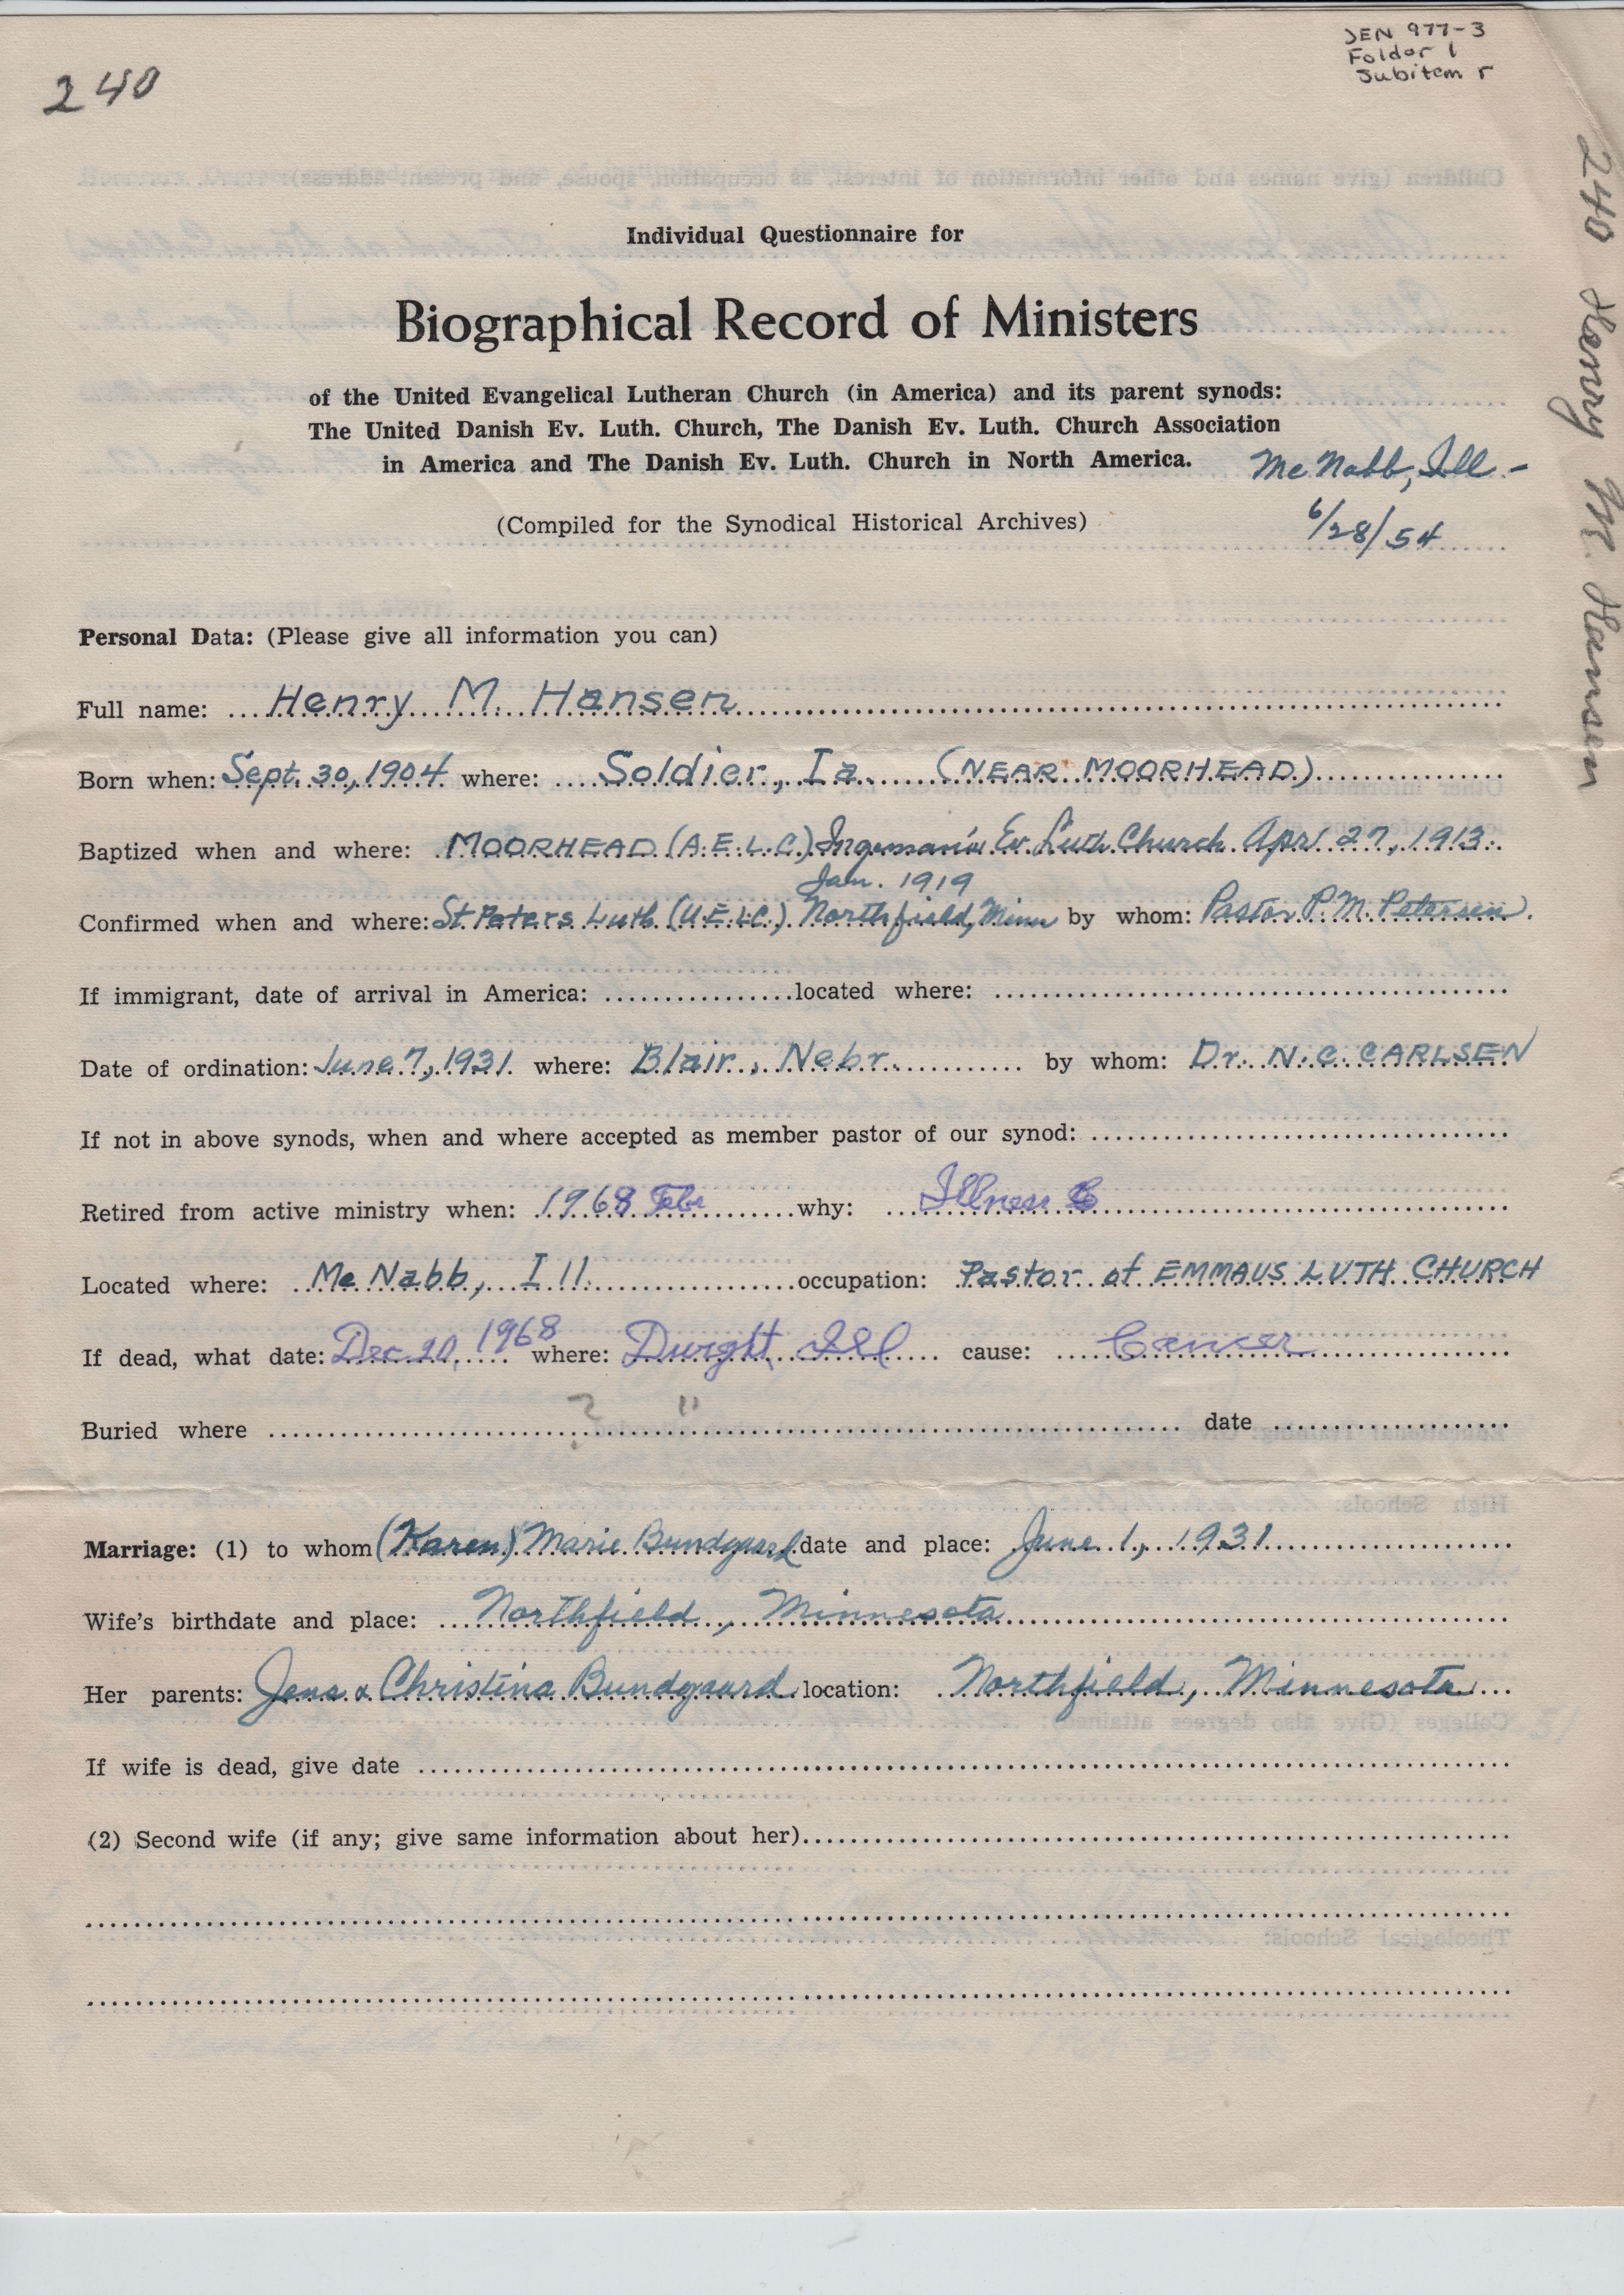 JEN 977-3
Folder 1
Subitem r
240
240 Henry M. Hansen
Individual Questionnaire for
Biographical Record of Ministers
of the United Evangelical Lutheran Church (in America) and its parent synods:
The United Danish Ev. Luth. Church, The Danish Ev. Luth. Church Association
in America and The Danish Ev. Luth. Church in North America.
Mc Nabb, Ill -
(Compiled for the Synodical Historical Archives)
6/28/54
Personal Data: (Please give all information you can)
Full name: Henry M. Hansen
Born when: Sept. 30, 1904 where: Soldier, Ia. (NEAR MOORHEAD)
Baptized when and where: MOORHEAD (A.E.L.C.) Ev. Luth. Church Apr. 27, 1913.
Jan. 1919
Confirmed when and where: St Peters Luth (U.E.L.C.) Northfield, Minn by whom: Pastor P. M. Petersen.
If immigrant, date of arrival in America: located where:
Date of ordination: June 7, 1931 where: Blair, Nebr. by whom: Dr. N. C. CARLSEN
If not in above synods, when and where accepted as member pastor of our synod:
Retired from active ministry when: 1968 Feb why: Illness
Located where: Mc Nabb, Ill. occupation: Pastor of EMMAUS LUTH. CHURCH
If dead, what date: Dec 20, 1968 where: Dwight, Ill cause: Cancer
Buried where ? " date
Marriage: (1) to whom (Karen) Marie Bundgaard date and place: June 1, 1931
Wife's birthdate and place: Northfield, Minnesota
Her parents: Jens & Christina Bundgaard location: Northfield, Minnesota
If wife is dead, give date
(2) Second wife (if any; give same information about her)